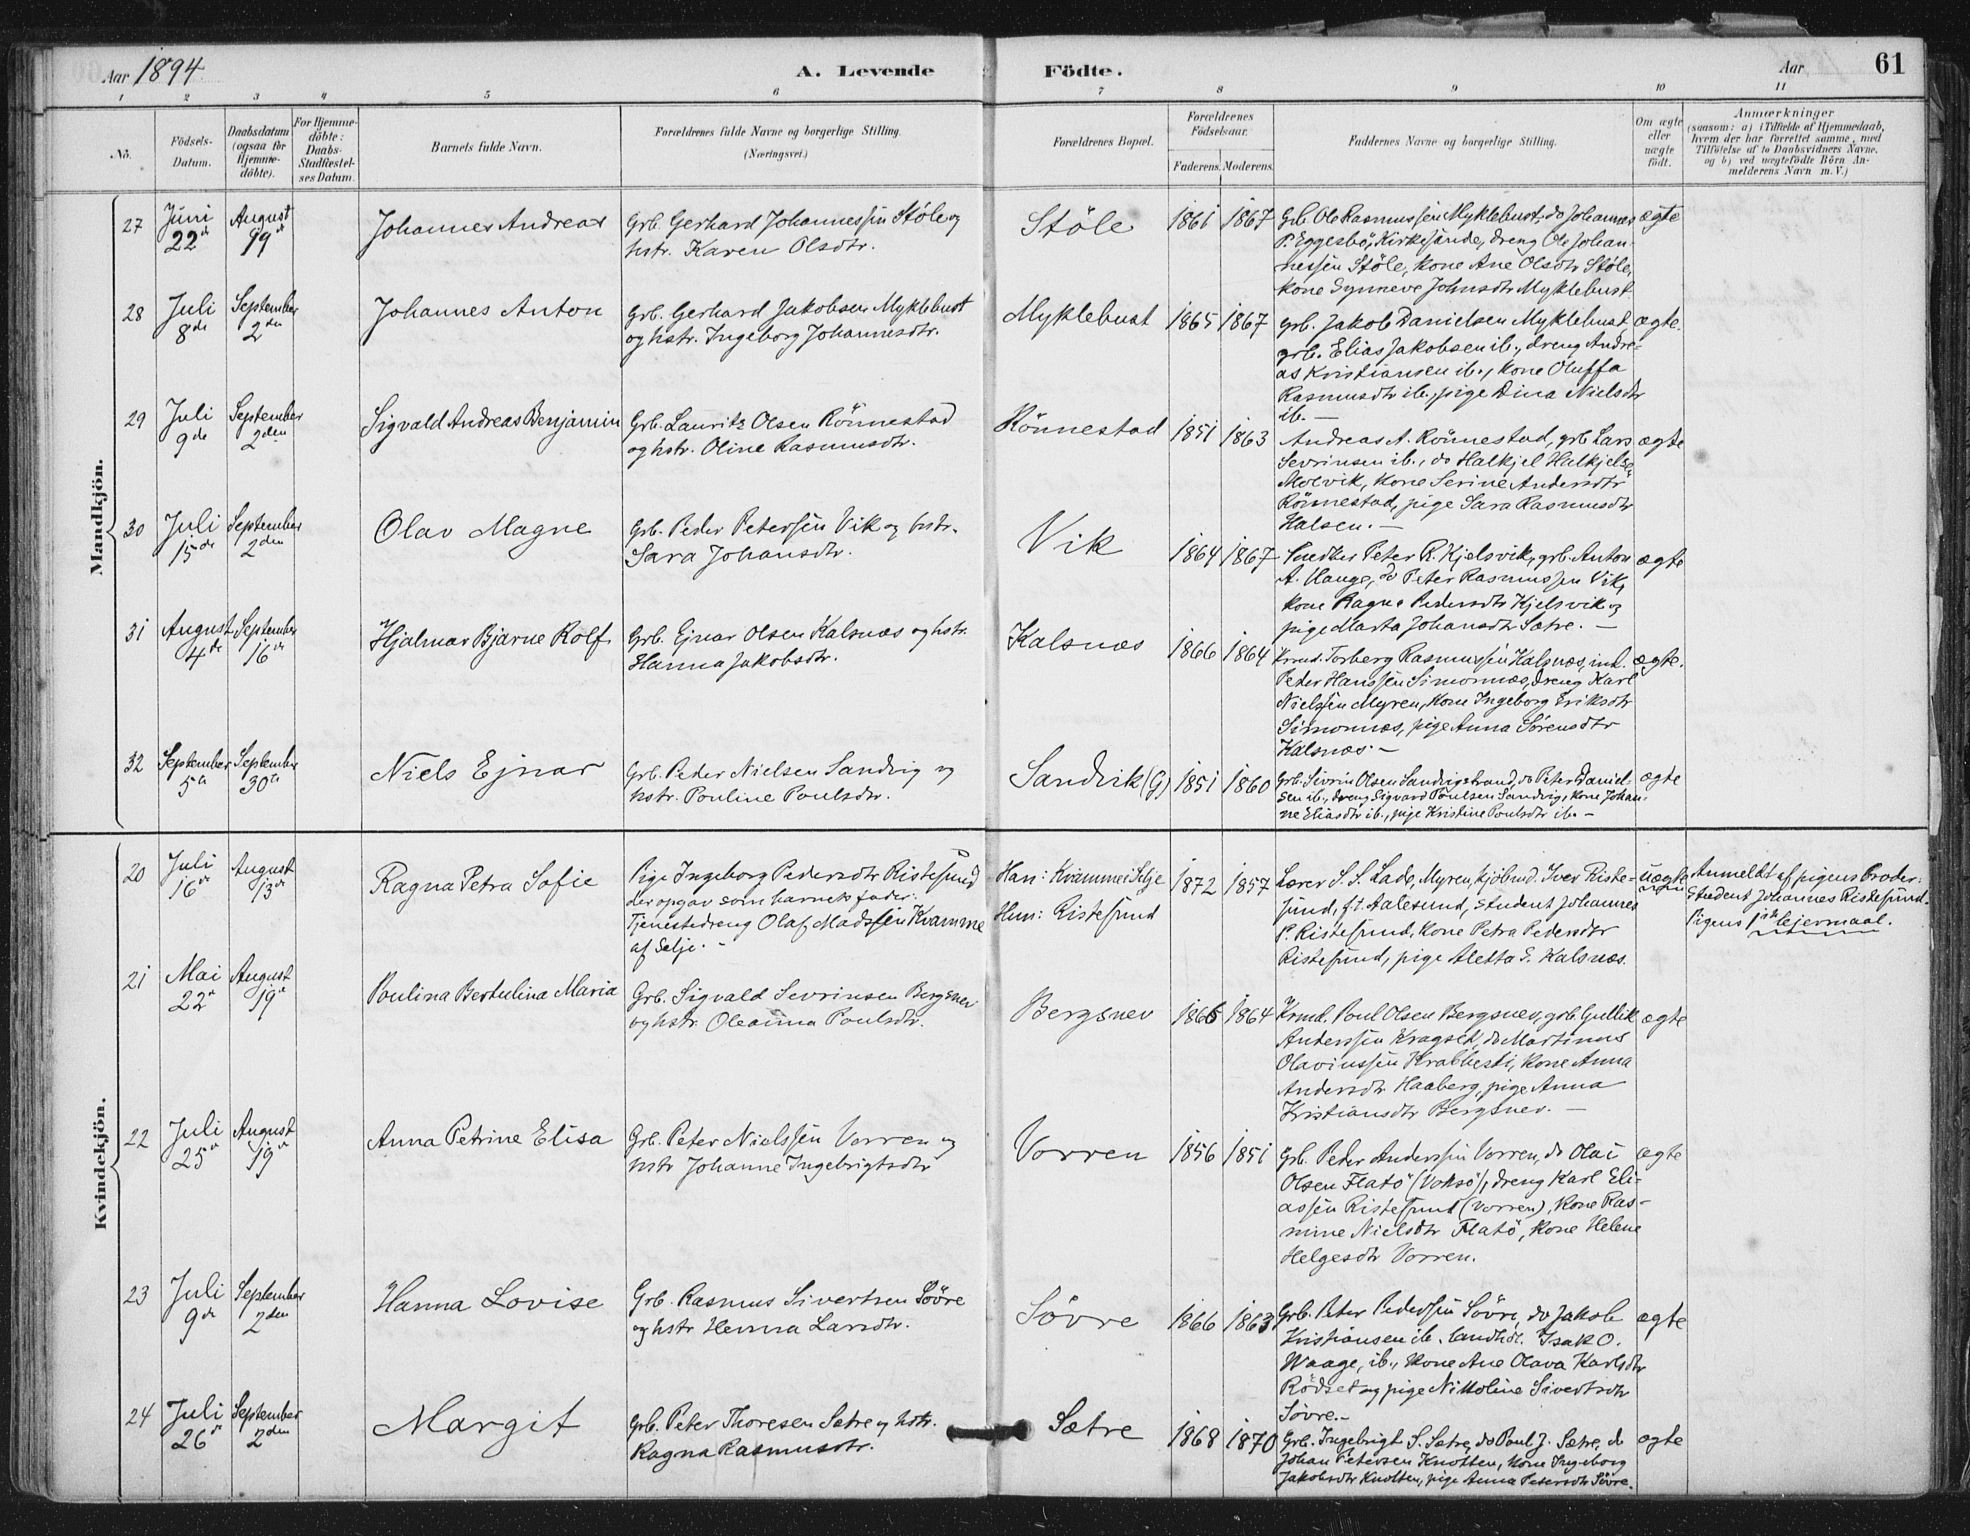 Aar 1894. A. Levende Födte. Aar 61
1 2 3 4 5 6 7 8 9 10 11
No.
Födsels-Datum.
Daabsdatum (ogsaa for Hjemme-döbte).
For Hjemme-döbte: Daabs-Stadfæstel-ses Datum.
Barnets fulde Navn.
Forældrenes fulde Navne og borgerlige Stilling.
(Næringsvei.)
Forældrenes Bopæl.
Forældrenes Födselsaar.
Faderens. Moderens.
Faddernes Navne og borgerlige Stilling.
Om ægte eller uægte födt.
Anmærkninger
(saasom: a) i Tilfælde af Hjemmedaab, hvem der har forrettet samme, med Tilföielse af to Daabsvidners Navne, og b) ved uægtefödte Börn Anmelderens Navn m. V.)
Mandkjön.
27 Juni 22de August 19de Johannes Andreas
Grb. Gerhard Johannessen Stöle og
hstr. Karen Olsdtr.
Stöle 1861 1867
Grb. Ole Rasmussen Myklebust, do Johannes
P. Eggesbö, Kirkesanger, dreng Ole Johan-
nessen Stöle, kone Ane Olsdtr Stöle,
kone Synneve Johnsdtr Myklebust
ægte
28 Juli 8de September 2den Johannes Anton
Grb. Gerhard Jakobsen Myklebust
og hstr. Ingeborg Johannesdtr.
Myklebust 1865 1867
grb. Jakob Danielsen Myklebust,
grb. Elias Jakobsen ib., dreng Andre-
as Kristiansen ib., kone Oluffa
Rasmusdtr ib., pige Dina Nielsdtr
ib. —
ægte.
29 Juli 9de September 2den Sigvald Andreas Benjamin
Grb. Lauritz Olsen Rönnestad
og hstr. Oline Rasmusdtr.
Rönnestad 1851 1863
Andreas A. Rönnestad, grb Lars
Sevrinsen ib., do Halkjel Halkjels.
Molvik, kone Serine Andersdtr
Rönnestad, pige Sara Rasmusdtr
Halsen. —
ægte
30 Juli 15de September 2den Olav Magne
Grb. Peder Petersen Vik og hstr.
Sara Johansdtr.
Vik 1864 1867
Snedker Peter R. Kjelsvik, grb. Anton
A. Hauge, do Peter Rasmussen Vik,
kone Ragna Pedersdtr Kjelsvik og
pige Marta Johansdtr Sætre. —
ægte
31 August 4de September 16de Hjalmar Bjarne Rolf
Grb. Ejnar Olsen Kalsnæs og hstr.
Hanna Jakobsdtr.
Kalsnæs 1866 1864
Krmd. Torberg Rasmussen Kalsnæs, ind.
Peder Hanssen Simonnæs, dreng Karl
Nielssen Myren, kone Ingeborg Eriksdtr
Simonnæs, pige Anna Sörensdtr
Kalsnæs. —
ægte.
32 September 5te September 30te Niels Ejnar
Grb. Peder Nielsen Sandvig og
hstr. Pouline Poulsdtr.
Sandvik (G) 1851 1860
Grb. Sivrin Olsen Sandvigstrand, do Peter Daniel-
sen ib., dreng Sigvard Poulsen Sandvig, kone Johan-
ne Eliasdtr ib., pige Kristine Poulsdtr ib. —
ægte
Kvindekjön.
20 Juli 16de August 13de Ragna Petra Sofie
Pige Ingeborg Pedersdtr Ristesund
der opgav som barnets fader:
Tjenestedreng Olaf Madssen Kvamme
af Selje. -
Han: Kvamme i Selje
Hun: Ristesund
1872 1857
Lærer S. S. Lade, Myren, kjöbmd. Iver Riste-
sund, f. t. Aalesund, student Johannes
P. Ristesund, kone Petra Pedersdtr
Ristesund, pige Aletta E. Kalsnæs.
uægte
Anmeldt af pigens broder:
Student Johannes Ristesund.
Pigens 1ste leiermaal.
21 Mai 22de August 19de Poulina Bertulina Maria
Grb. Sigvald Sevrinsen Bergsnev
og hstr. Oleanna Poulsdtr.
Bergsnev 1866 1864
Krmd. Poul Olsen Bergsnev, grb. Gullik
Anderssen Kragset, do Martinus
Olavinussen Krabbesti, kone Anna
Andersdtr Haaberg, pige Anna
Kristiansdtr Bergsnev. —
ægte
22 Juli 25de August 19de Anna Petrine Elisa
Grb. Peter Nielssen Vorren og
hstr Johanne Ingebrigtsdtr
Vorren 1856 1851
Grb. Peder Anderssen Vorren, do Olai
Olsen Flatö (Voksö), dreng Karl Eli-
assen Ristesund (Vorren), kone Ras-
mine Nielsdtr Flatö, kone Helene
Helgesdtr Vorren.
ægte
23 Juli 9de September 2den Hanna Lovise
Grb. Rasmus Sivertsen Sövre
og hstr Henna Larsdtr.
Sövre 1866 1863
Grb. Peter Pederssen Sövre, do Jakob
Kristiansen ib. landhdl. Isak O.
Waage, ib., kone Ane Olava Karlsdtr
Rödset og pige Nikoline Sivertsdtr
Sövre. -
ægte
24 Juli 26de September 2den Margit
Grb. Peter Thoresen Sætre og hstr.
Ragna Rasmusdtr.
Sætre 1868 1870
Grb. Ingebrigt S. Sætre, do Poul J. Sætre, do
Johan Petersen Knotten, kone Ingeborg
Jakobsdtr Knotten, pige Anna Petersdtr Sövre.
ægte